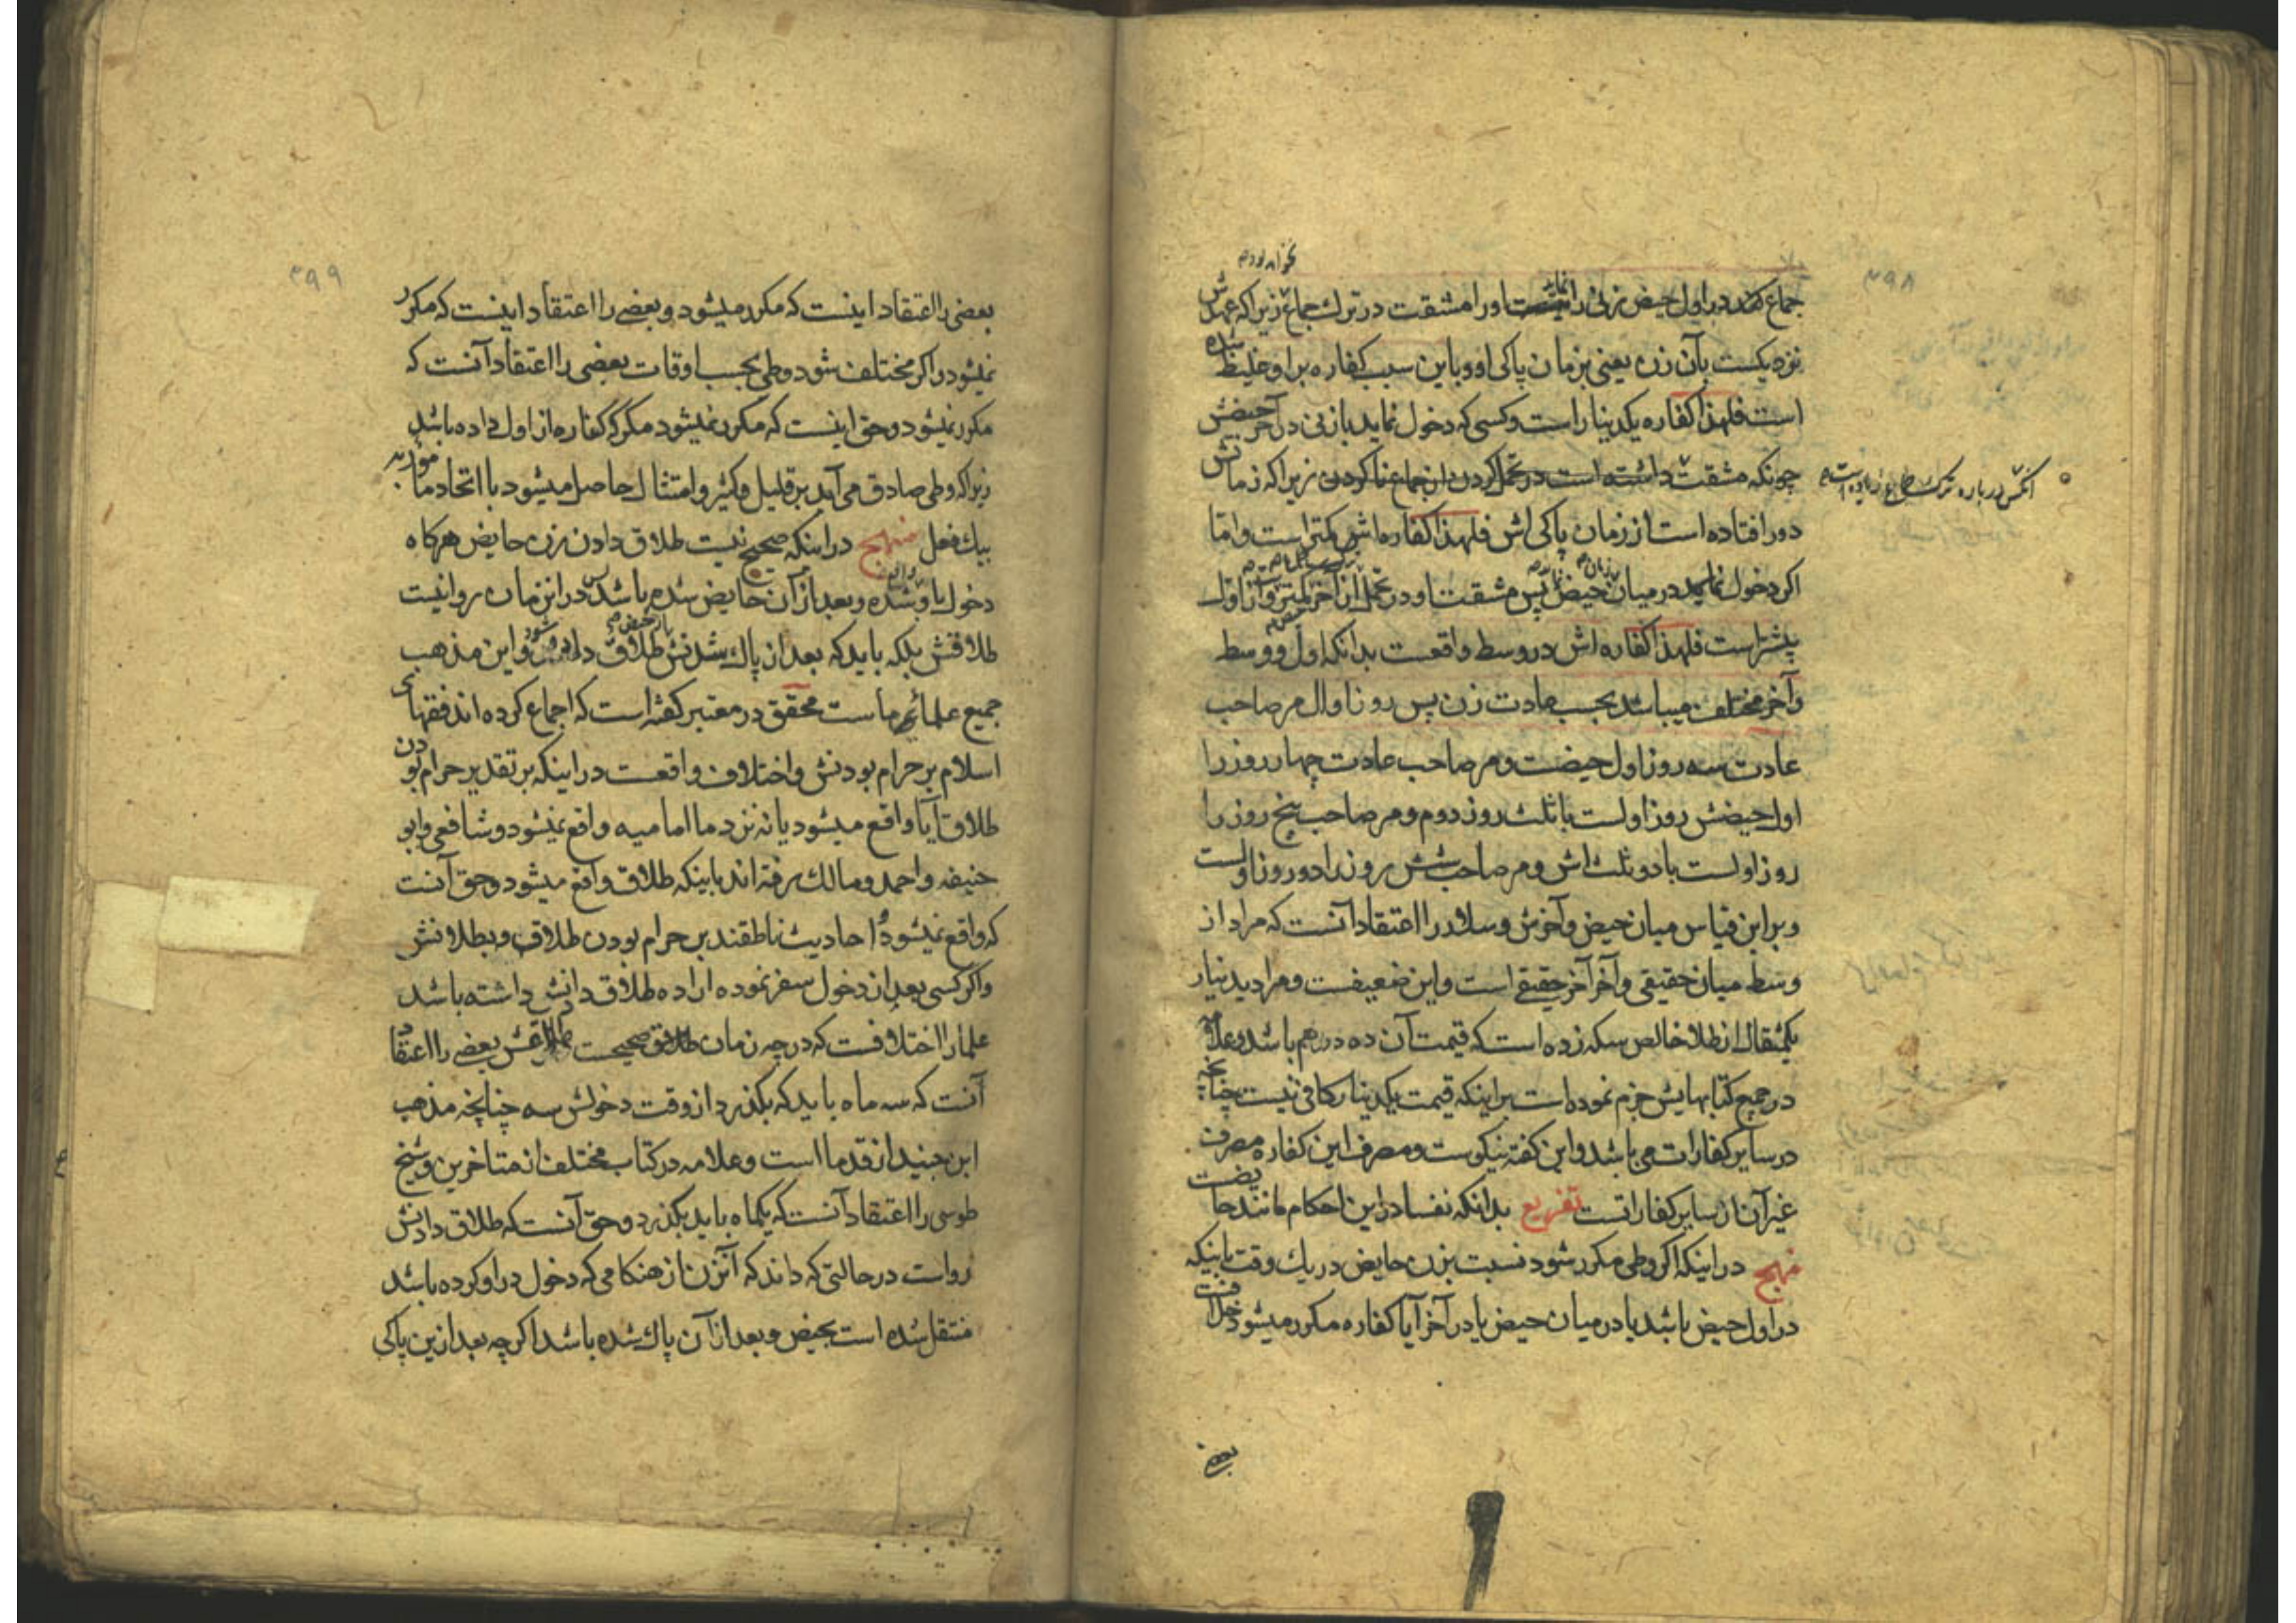 ۳۹۸
جماع کند در اول حیض زنی را نیست او را مشقت در ترك جماع زیرا که عهدش
نزدیکست بآن زن یعنی بزمان پاکی او و باین سبب کفاره بر او غلیظ شده
است فلهذا کفاره یکدینار است و کسی که دخول نماید بازنی در آخر حیضش
چونکه مشقت داشته است در تحمل کردن از جماع نا کردن زیرا که زمانش
آنکس درباره ترك جماع زیاده است
دور افتاده است از زمان پاکی اش فلهذا کفاره اش کمتر است و اما
اکر دخول نماید در میان حیض پس مشقت او در تحمل از آخر کمتر و از اول
پیشتر است فلهذا کفاره اش در وسط واقعست بدانکه اول و وسط
و آخر مختلف میباشد بحسب عادت زن پس روز اول مر صاحب
عادت سه روز اول حیضست و مر صاحب عادت چهار روز را
اول حیضش روز اولست با ثلث روز دوم و مر صاحب پنج روز را
روز اولست با دو ثلث اش و مر صاحب شش روز را دو روز اولست
و بر این قیاس میان حیض و آخرش و سلار را اعتقاد آنست که مراد از
وسط میان حقیقی و آخر آخر حقیقے است و این ضعیفست و مراد بدینار
یکمثقال از طلا خالص سکه زده است که قیمت آن ده درهم باشد و علامه
در جمیع کتابهایش جزم نموده است براینکه قیمت یکدینار کافی نیست چنانچه
در سایر کفارات می باشد و این کفته نیکوست و مصرف این کفاره مصرف
غیر آن از سایر کفاراتست تفریع بدانکه نفسا در این احکام مانند حایضست
منهج در اینکه اکر وطی مکرر شود نسبت بزن حایض در یك وقت باینکه
در اول حیض باشد یا در میان حیض یا در آخر آیا کفاره مکرر میشود خلافست
بعضی
۳۹۹
بعضی را اعتقاد اینست که مکرر میشود و بعضے را اعتقاد اینست که مکرر
نمیشود و اکر مختلف شود وطی بحسب اوقات بعضی را اعتقاد آنست که
مکرر نمیشود و حق اینست که مکرر نمیشود مکر که کفاره از اول داده باشد
زیرا که وطی صادق می آید بر قلیل و کثیر و امتثال حاصل میشود با اتحاد مأموربه
بیك فعل منهج در اینکه صحیح نیست طلاق دادن زن حایض هرکاه
دخول باو شده و بعد از آن حایض شده باشد پس در این زمان روا نیست
طلاقش بلکه باید که بعد از پاك شدنش از حیض طلاق داده شود و این مذهب
جمیع علمائی ماست محقق در معتبر کفته است که اجماع کرده اند فقهای
اسلام بر حرام بودنش و اختلاف واقعست در اینکه بر تقدیر حرام بودن
طلاق آیا واقع میشود یا نه نزد ما امامیه واقع نمیشود و شافعی و ابو
حنیفه و احمد و مالك رفته اند باینکه طلاق واقع میشود و حق آنست
که واقع نمیشود و احادیث ناطقند بر حرام بودن طلاق و بطلانش
و اکر کسی بعد از دخول سفر نموده اراده طلاق دادنش داشته باشد
علما را اختلافست که در چه زمان صحیحست طلاقش بعضے را اعتقاد
آنست که سه ماه باید که بکذرد از وقت دخولش چنانچه مذهب
ابن جنید از قدما است و علامه در کتاب مختلف از متاخرین و شیخ
طوسی را اعتقاد آنست که یکماه باید بکذرد و حق آنست که طلاق دادنش
رواست در حالتی که داند که آنزن از هنکامی که دخول در او کرده باشد
منتقل شده است بحیض و بعد از آن پاك شده باشد اکر چه بعد ازین پاکی